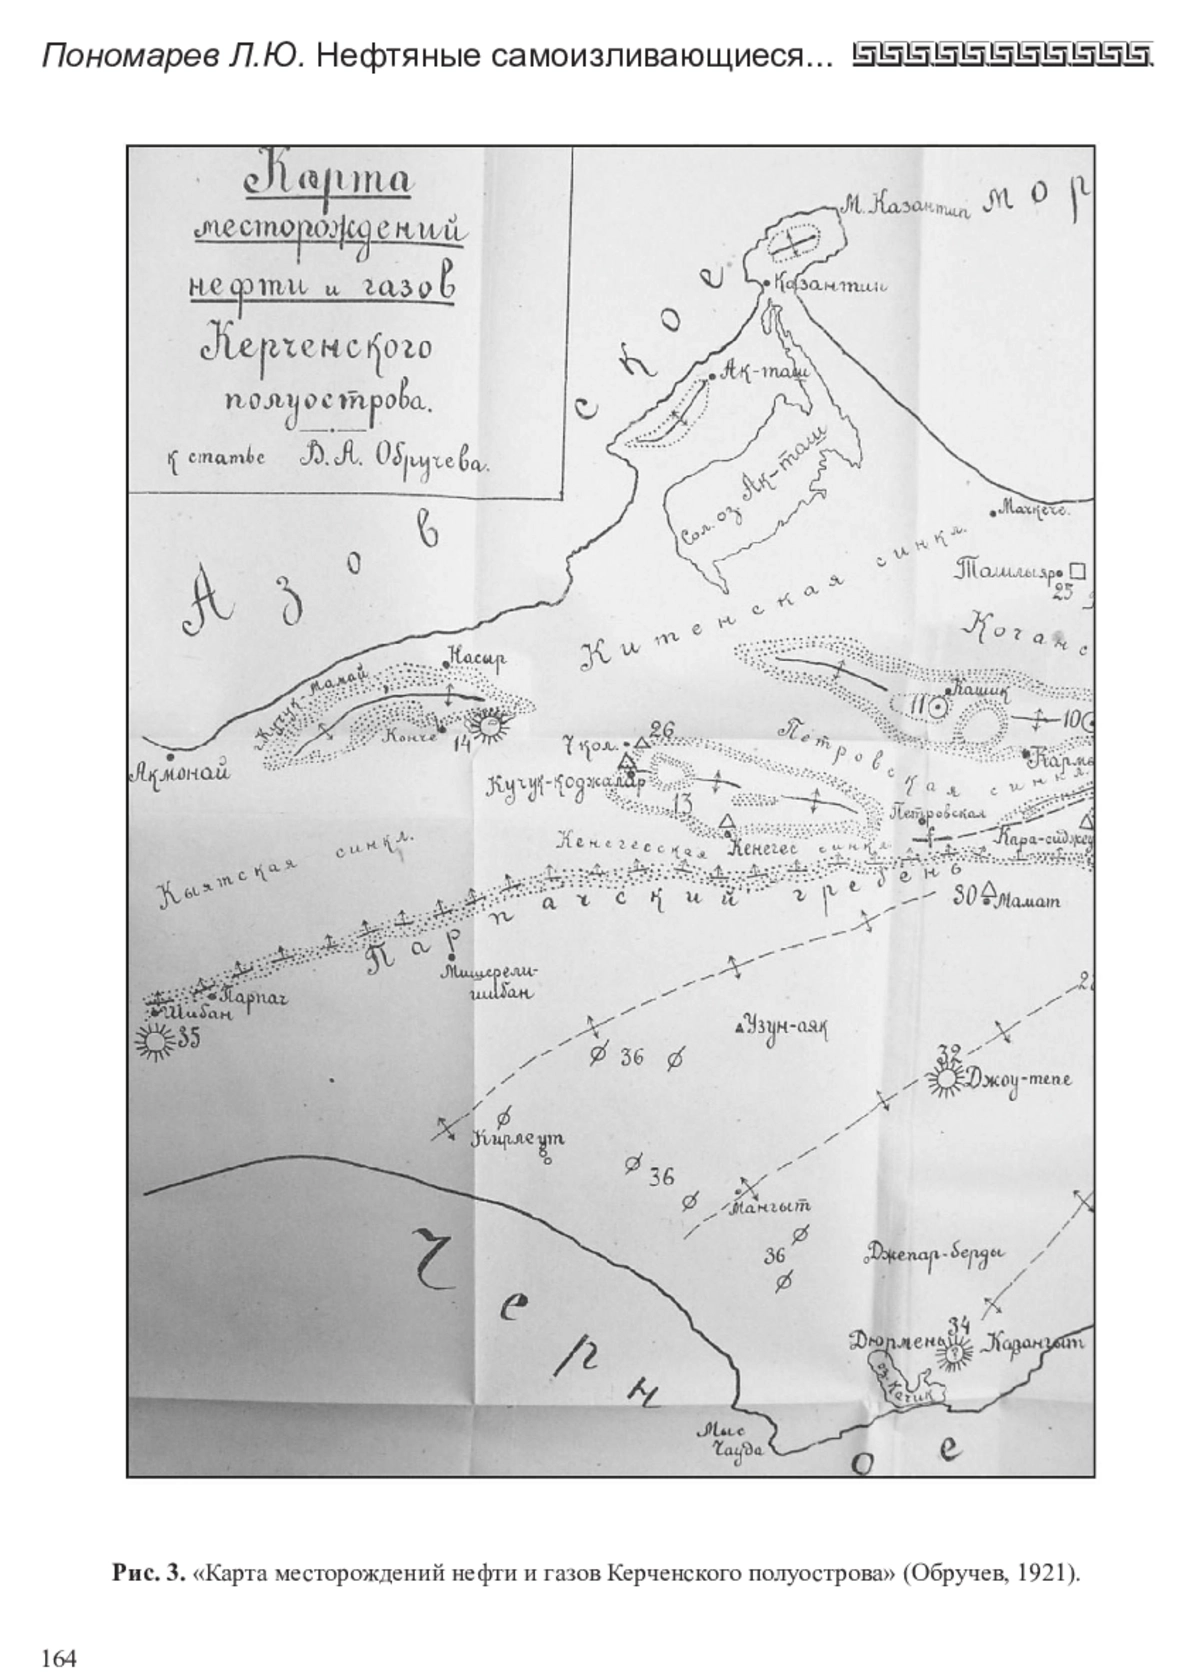 Пономарев Л.Ю. Нефтяные самоизливающиеся...
Карта
месторождений
нефти и газов
Керченского
полуострова.
к статье В.А. Обручева.
М. Казантип
Мор
Казантип
Азовское
Ак-таш
Сол. оз. Ак-таш
Мачкече.
Китенская синкл.
Ташлыяр
25
Кочанс
Насыр
Кучук-Мамай
Конче
14
Кашик
11
10
Акмонай
7 кол.
26
Петровская синкл.
Карм
Кучук-коджалар
13
Петровская
Кара-сиджеу
Кенегесская синкл.
Кенегес
Кыятская синкл.
Парпачский гребень
30
Мамат
Мишерели-
шибан
Парпач
Шибан
35
Узун-аяк
36
32
Джоу-тепе
Кирлеут
36
Мангыт
36
Джепар-берды
34
Дюрмень
Карангыт
оз. Качик
Черное
Мыс
Чауда
Рис. 3. «Карта месторождений нефти и газов Керченского полуострова» (Обручев, 1921).
164